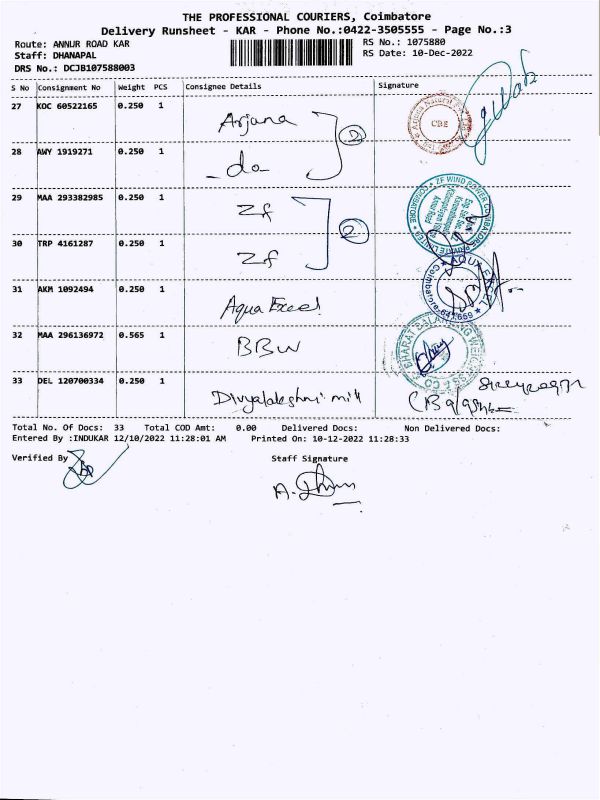 THE PROFESSIONAL COURIERS, Coimbatore
Delivery Runsheet - KAR - Phone No.:0422-3505555 - Page No.:3
Route: ANNUR ROAD KAR RS No.: 1075880
Staff: DHANAPAL RS Date: 10-Dec-2022
DRS No.: DCJB107588003
S No Consignment No Weight PCS Consignee Details Signature
27 KOC 60522165 0.250 1 Arjuna 2
28 AWY 1919271 0.250 1 -do-
29 MAA 293382985 0.250 1 Zf 2
30 TRP 4161287 0.250 1 Zf
31 AKM 1092494 0.250 1 Aqua Excel
32 MAA 296136972 0.565 1 BBW
33 DEL 120700334 0.250 1 Divyalakshmi milk
CBE
ZF WIND POWER COIMBATORE PRIVATE LIMITED
AQUA EXCEL
Coimbatore-641659
BHARAT BALANCING WEIGHTS
Total No. Of Docs: 33 Total COD Amt: 0.00 Delivered Docs: Non Delivered Docs:
Entered By :INDUKAR 12/10/2022 11:28:01 AM Printed On: 10-12-2022 11:28:33
Verified By Staff Signature